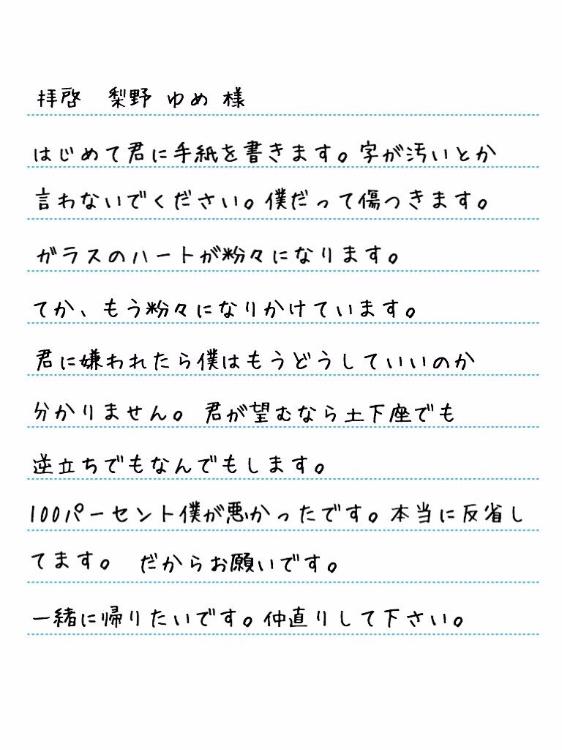 拝啓　梨野 ゆめ 様
はじめて君に手紙を書きます。字が汚いとか
言わないでください。僕だって傷つきます。
ガラスのハートが粉々になります。
てか、もう粉々になりかけています。
君に嫌われたら僕はもうどうしていいのか
分かりません。 君が望むなら土下座でも
逆立ちでもなんでもします。
100パーセント僕が悪かったです。本当に反省し
てます。　だからお願いです。
一緒に帰りたいです。仲直りして下さい。